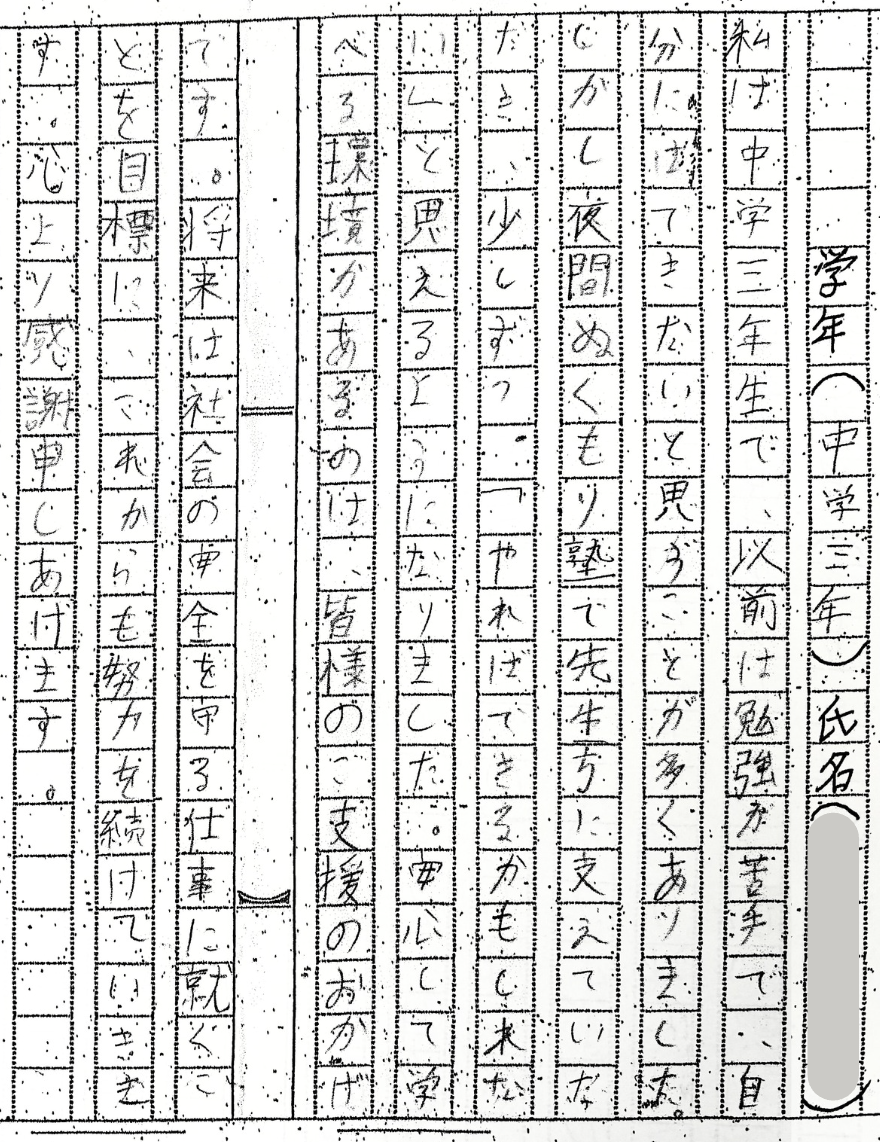 学年（中学三年）氏名（　）
私は中学三年生で、以前は勉強が苦手で、自
分にはできないと思うことが多くありました。
しかし夜間ぬくもり塾で先生方に支えていた
だき、少しずつ、「やればできるかもしれな
い」と思えるようになりました。安心して学
べる環境があるのは、皆様のご支援のおかげ
です。将来は社会の安全を守る仕事に就くこ
とを目標に、これからも努力を続けていきま
す。心より感謝申しあげます。